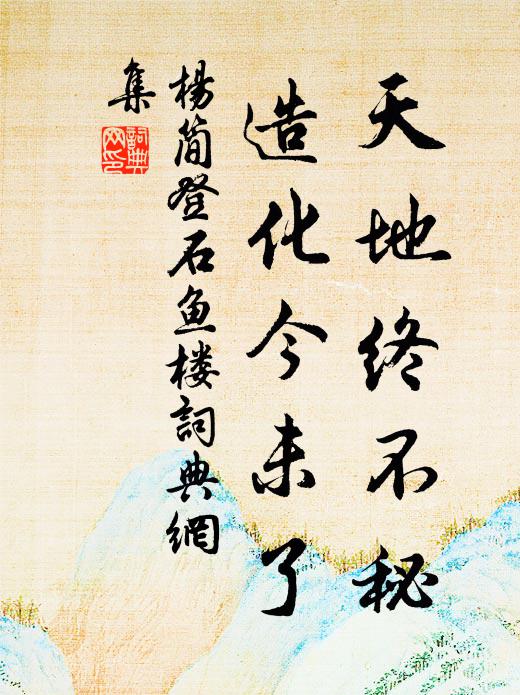 天地终不秘
造化今未了
楊简登石鱼楼詞典網
集
詞典網印